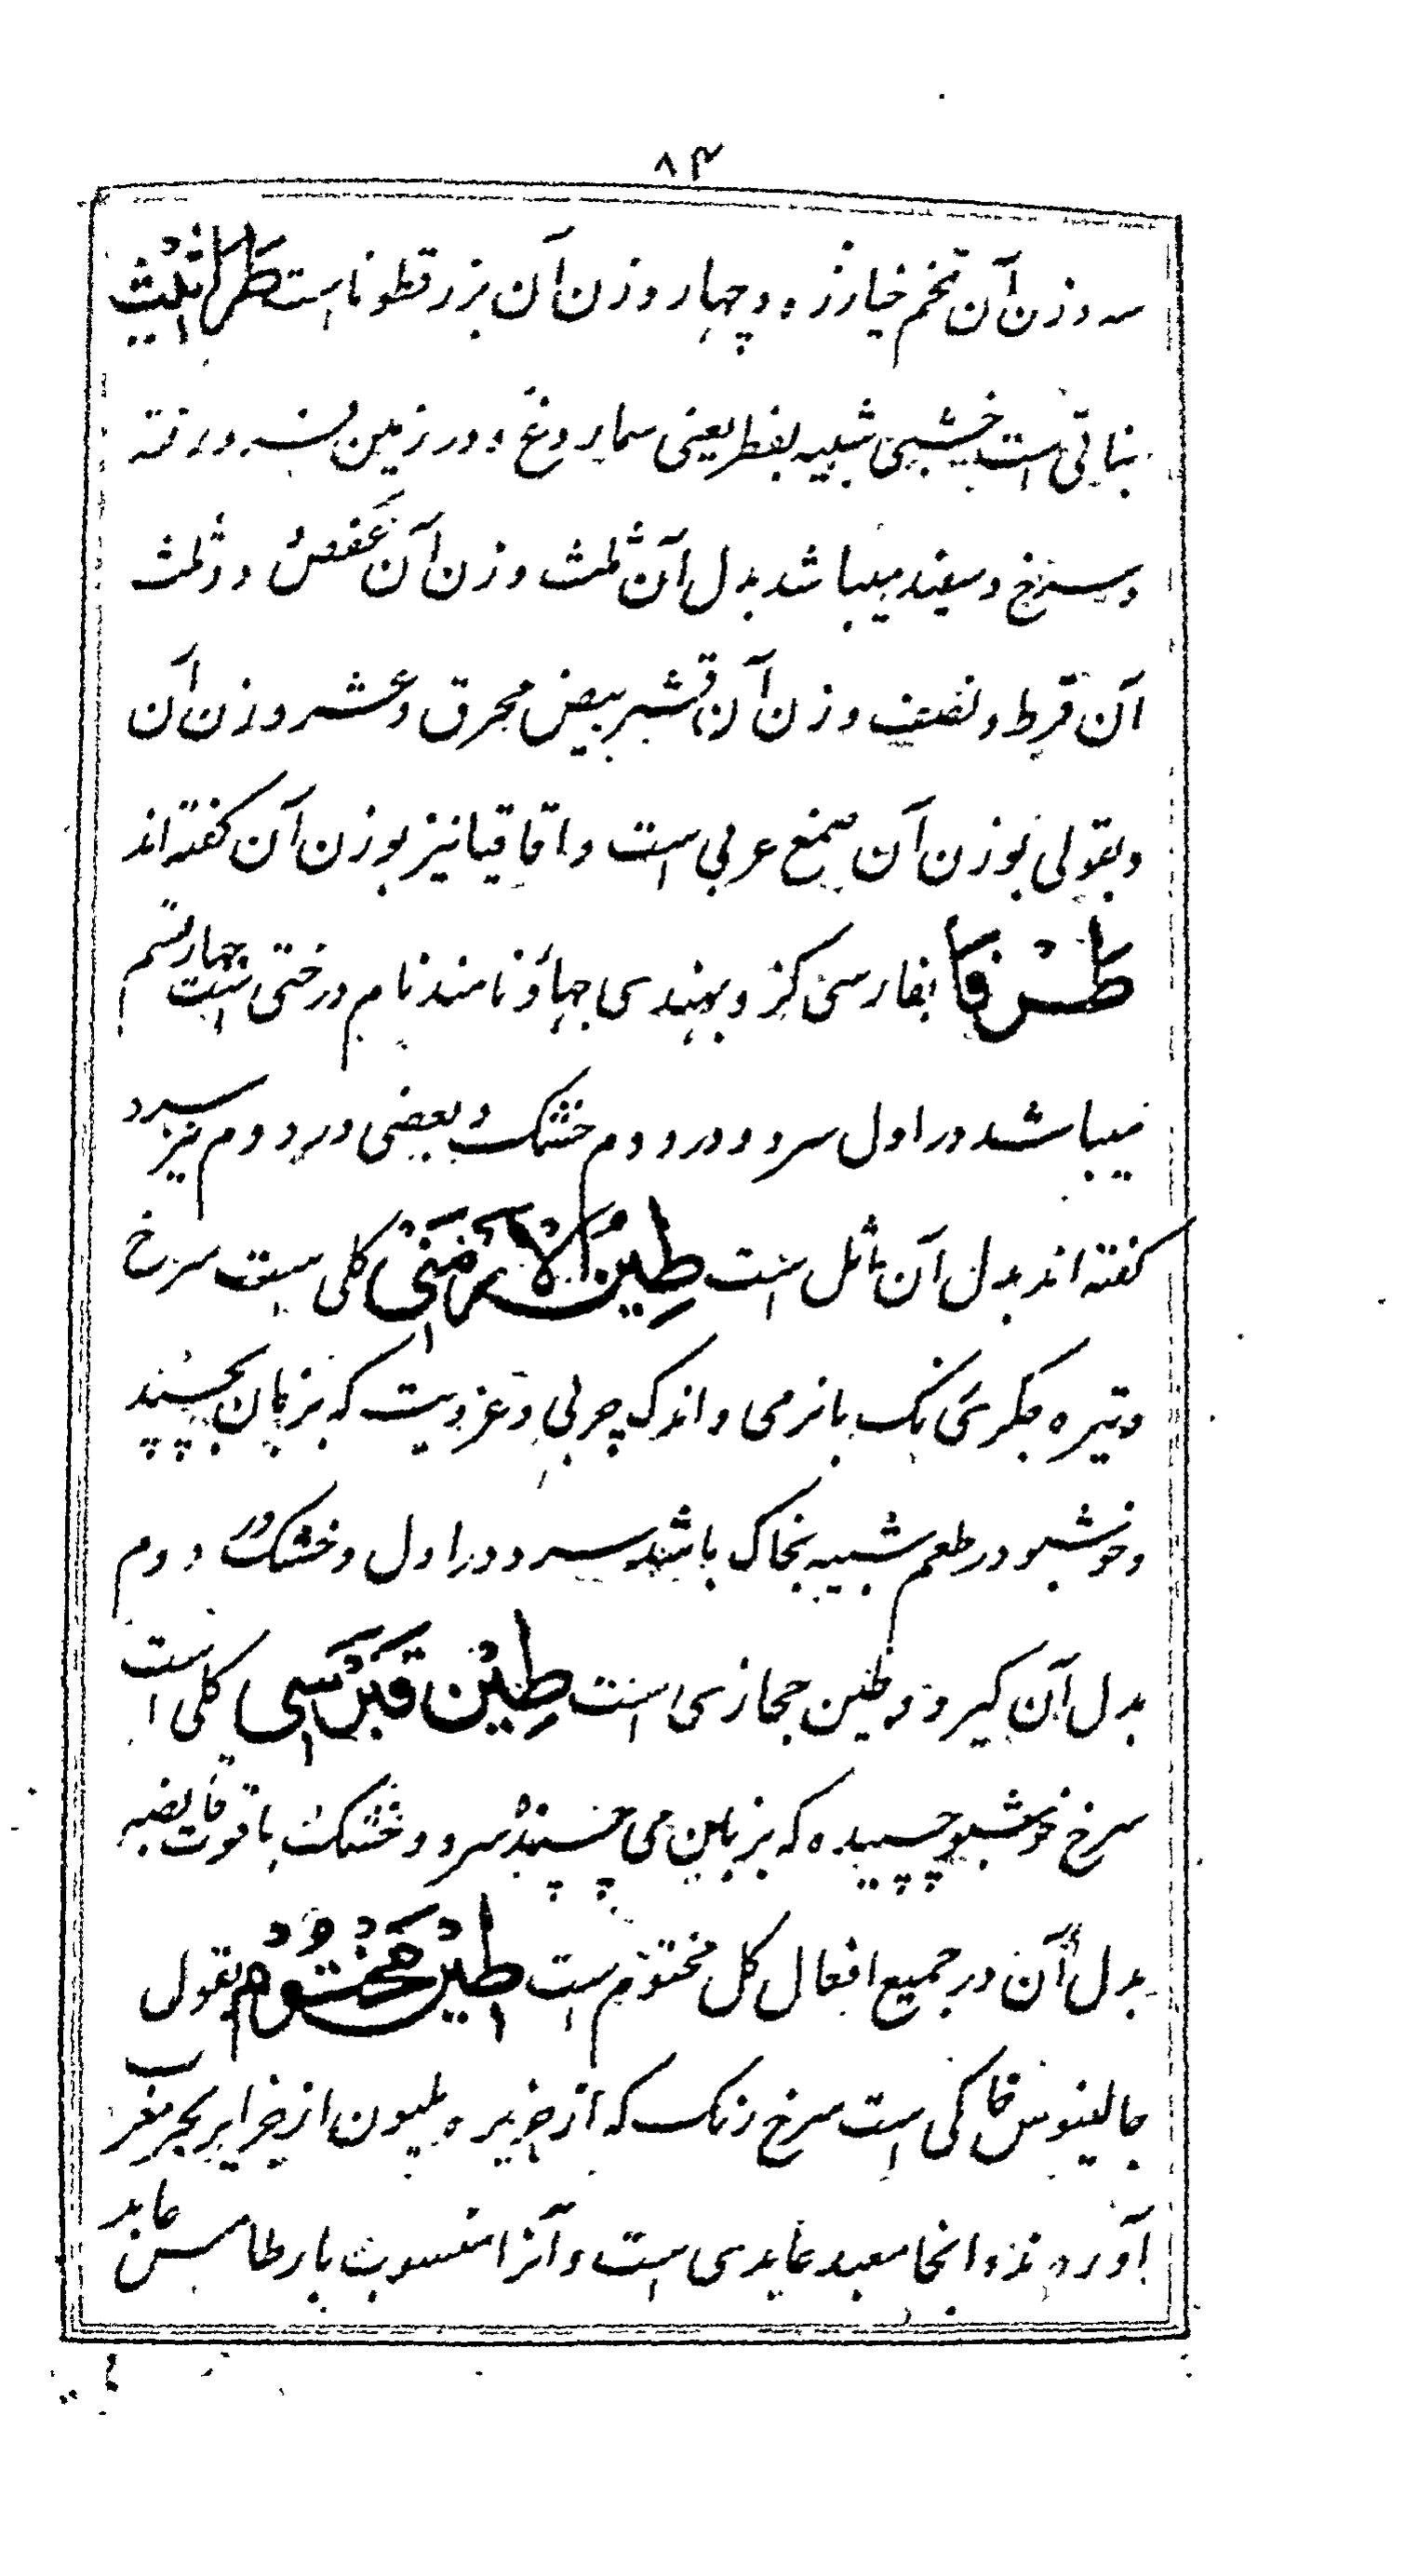 ۸۴
سه وزن آن تخم خیارزه و چهار وزن آن بزرقطونا است طراثیث
نباتی است خشبی شبیه بفطر یعنی سماروغ و در زمین فرو رفته
و سرخ و سفید میباشد بدل آن ثلث وزن آن عفص و دو ثلث
آن قرط و نصف وزن آن قشر بیض محرق و عشر وزن آن
و بقولی بوزن آن صمغ عربی است و اقاقیا نیز بوزن آن کفته اند
طرفا بفارسی کز و بهندی جهاؤ نامند نام درختی است چهار قسم
میباشد در اول سرد و در دوم خشک و بعضی در دوم نیز سرد
کفته اند بدل آن اثل است طین الارمنی کلی ست سرخ
و تیره جکری رنک با نرمی و اندک چربی و غرویت که بزبان بچسپد
و خوشبو در طعم شبیه بخاک باشد سرد در اول و خشک در دوم
بدل آن کیرو و طین حجازی است طین قبرسی کلی است
سرخ خوشبو چسپیده که بزبان می چسپد سرد و خشک با قوت قابضه
بدل آن در جمیع افعال کل مختوم است طین مختوم بقول
جالینوس خاکی است سرخ رنک که از جزیره ملیون از جزایر بحر مغرب
آورند و انجا معبد عابدی است و آنرا منسوب بارطامس عابد